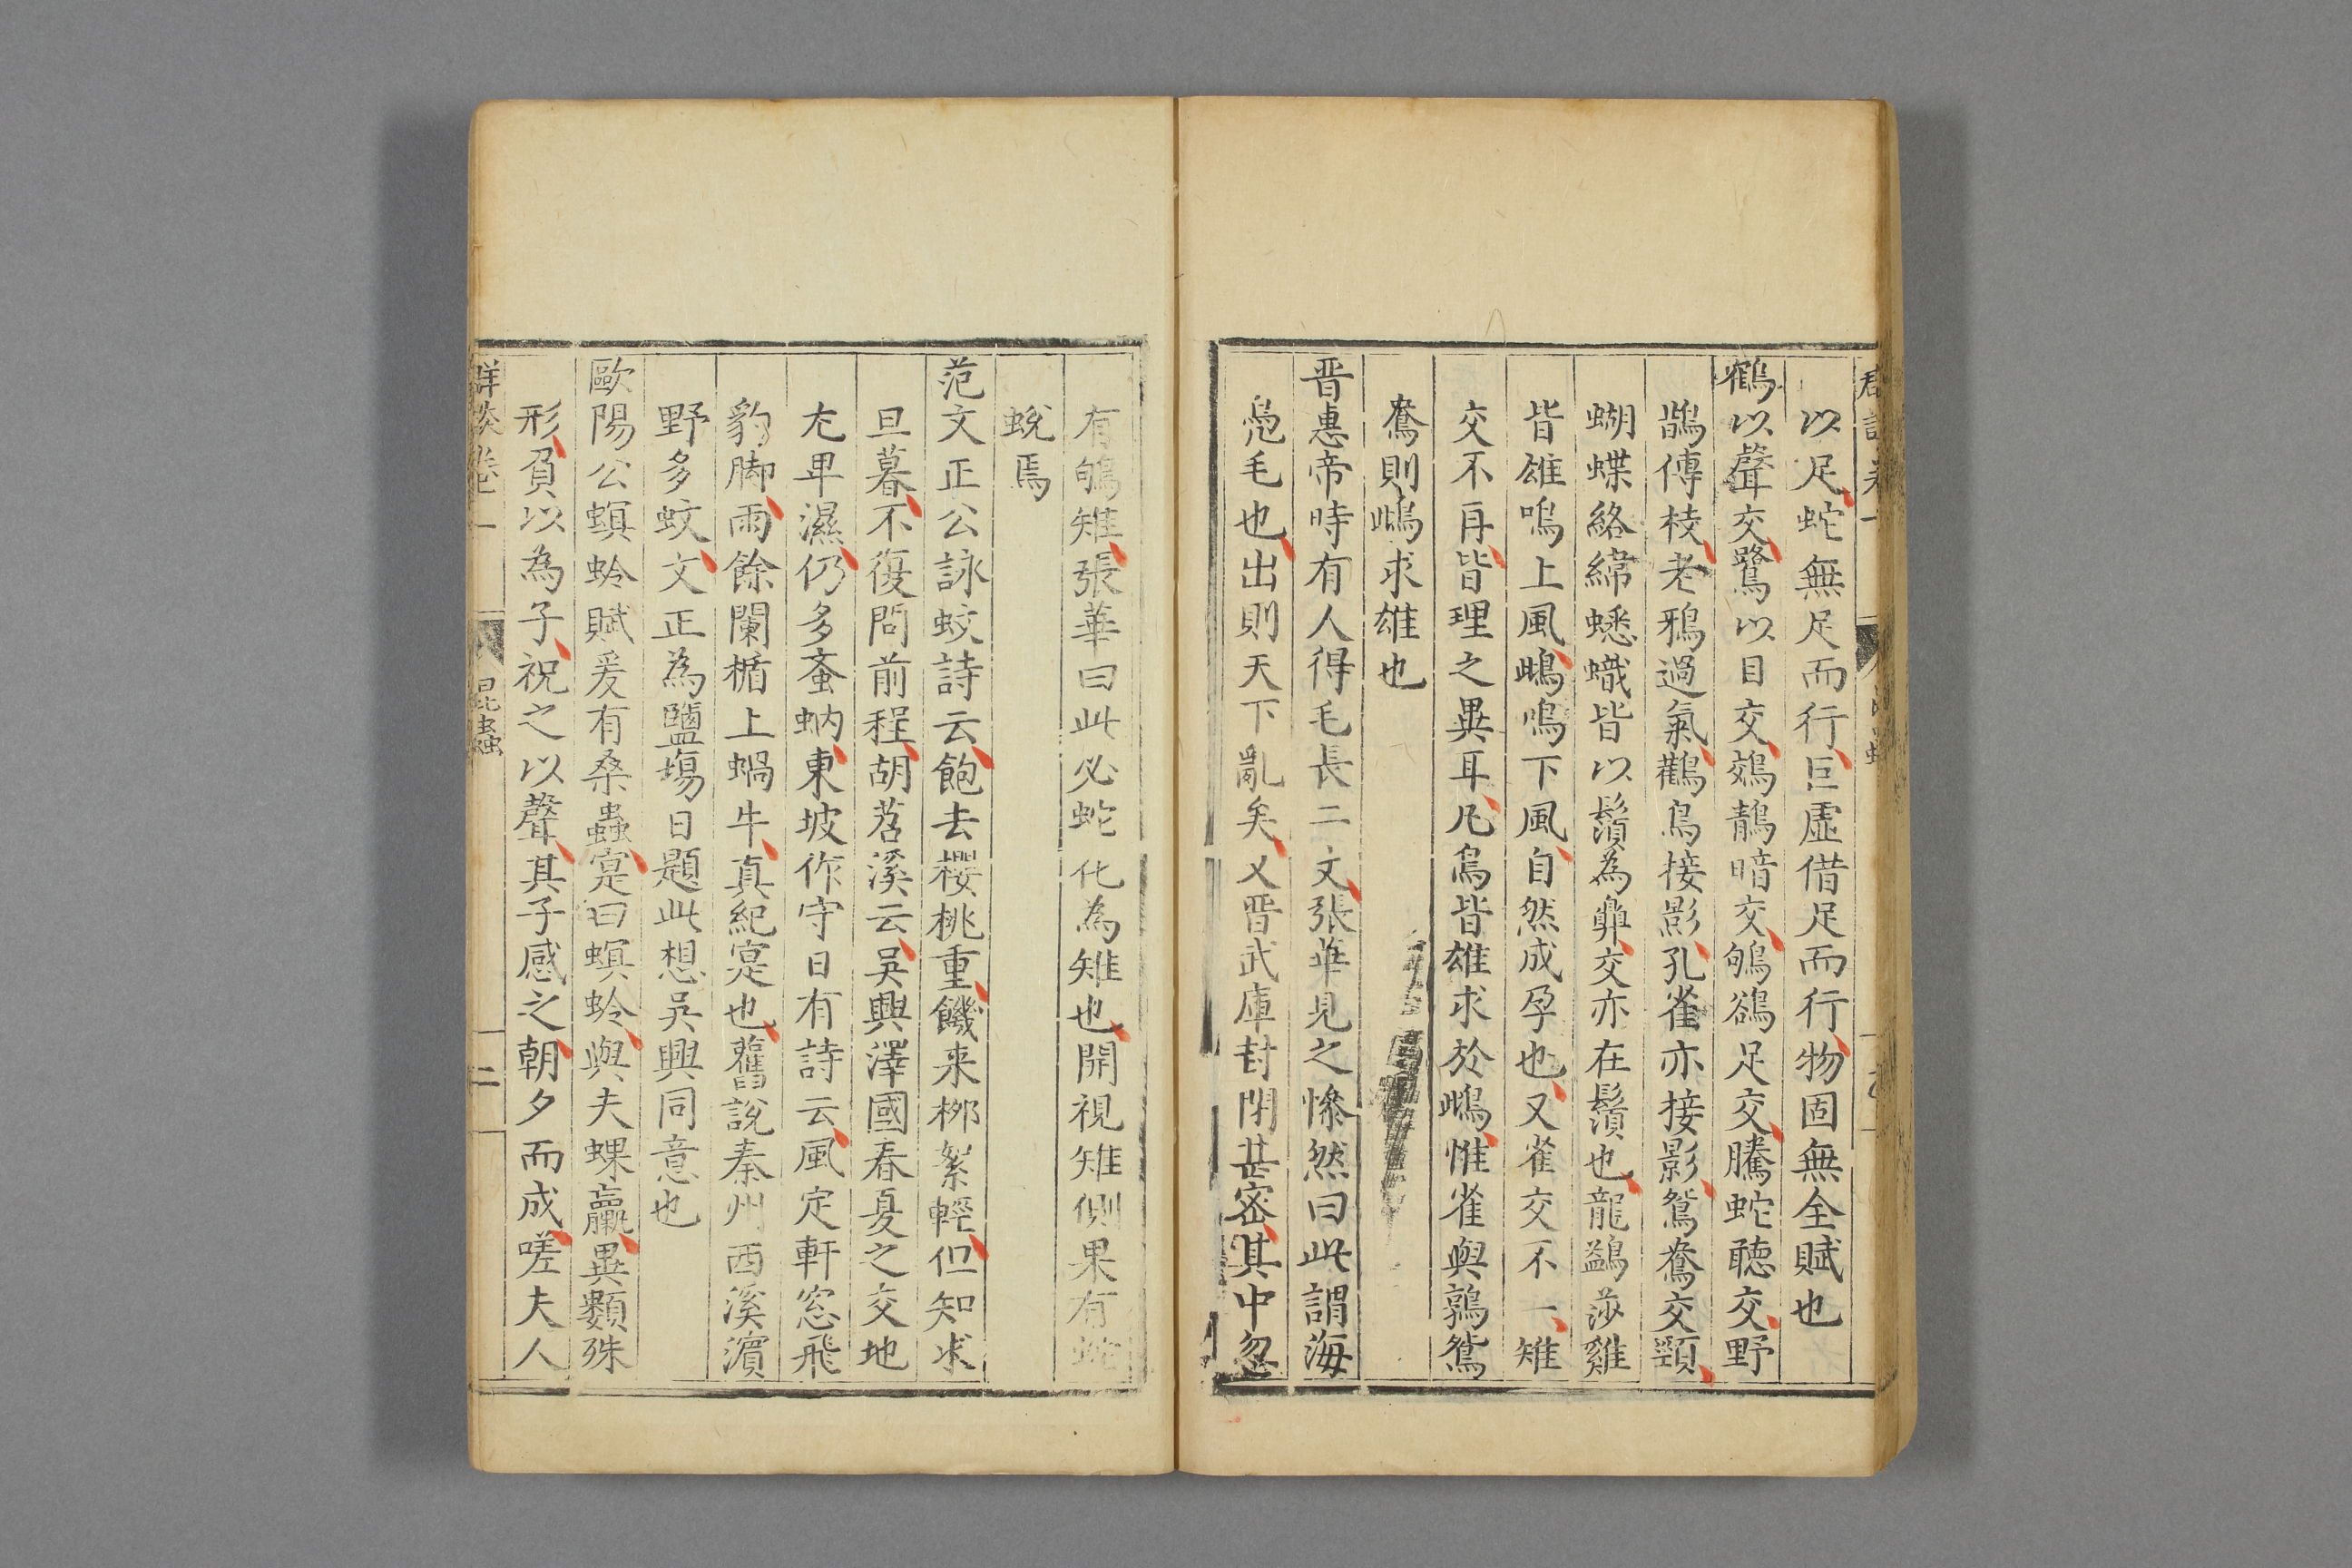 以足蛇無足而行巨虛借足而行物固無全賦也
鶴以聲交鷺以目交鵁鶄暗交鴝鵒足交騰蛇聽交野
鵲傅枝老鴉過氣鸛鳥接影孔雀亦接影鴛鴦交頸
蝴蝶絡緯蟋蟀皆以鬚為鼻交亦在鬚也龍鷁莎雞
皆雄鳴上風鴡鳴下風自然成孕也又雀交不一雉
交不再皆理之異耳凡鳥皆雄求於鴡惟雀與鶉鴛
鴦則鴡求雄也
晋惠帝時有人得毛長二丈張華見之慘然曰此謂海
鳧毛也出則天下亂矣又晋武庫封閉甚密其中忽
有鴝雉張華曰此必蛇化為雉也開視雉側果有蛇
蛻焉
范文正公詠蚊詩云飽去櫻桃重饑来柳絮輕但知求
旦暮不復問前程胡苕溪云吳興澤國春夏之交地
尤卑濕仍多蚉蚋東坡作守日有詩云風定軒窓飛
豹脚雨餘闌楯上蝸牛真紀寔也舊說秦州西溪濵
野多蚊文正為鹽塲日題此想吳興同意也
歐陽公螟蛉賦爰有桑蟲寔曰螟蛉與夫蜾蠃異類殊
形負以為子祝之以聲其子感之朝夕而成嗟夫人
群談卷一
昆蟲
二